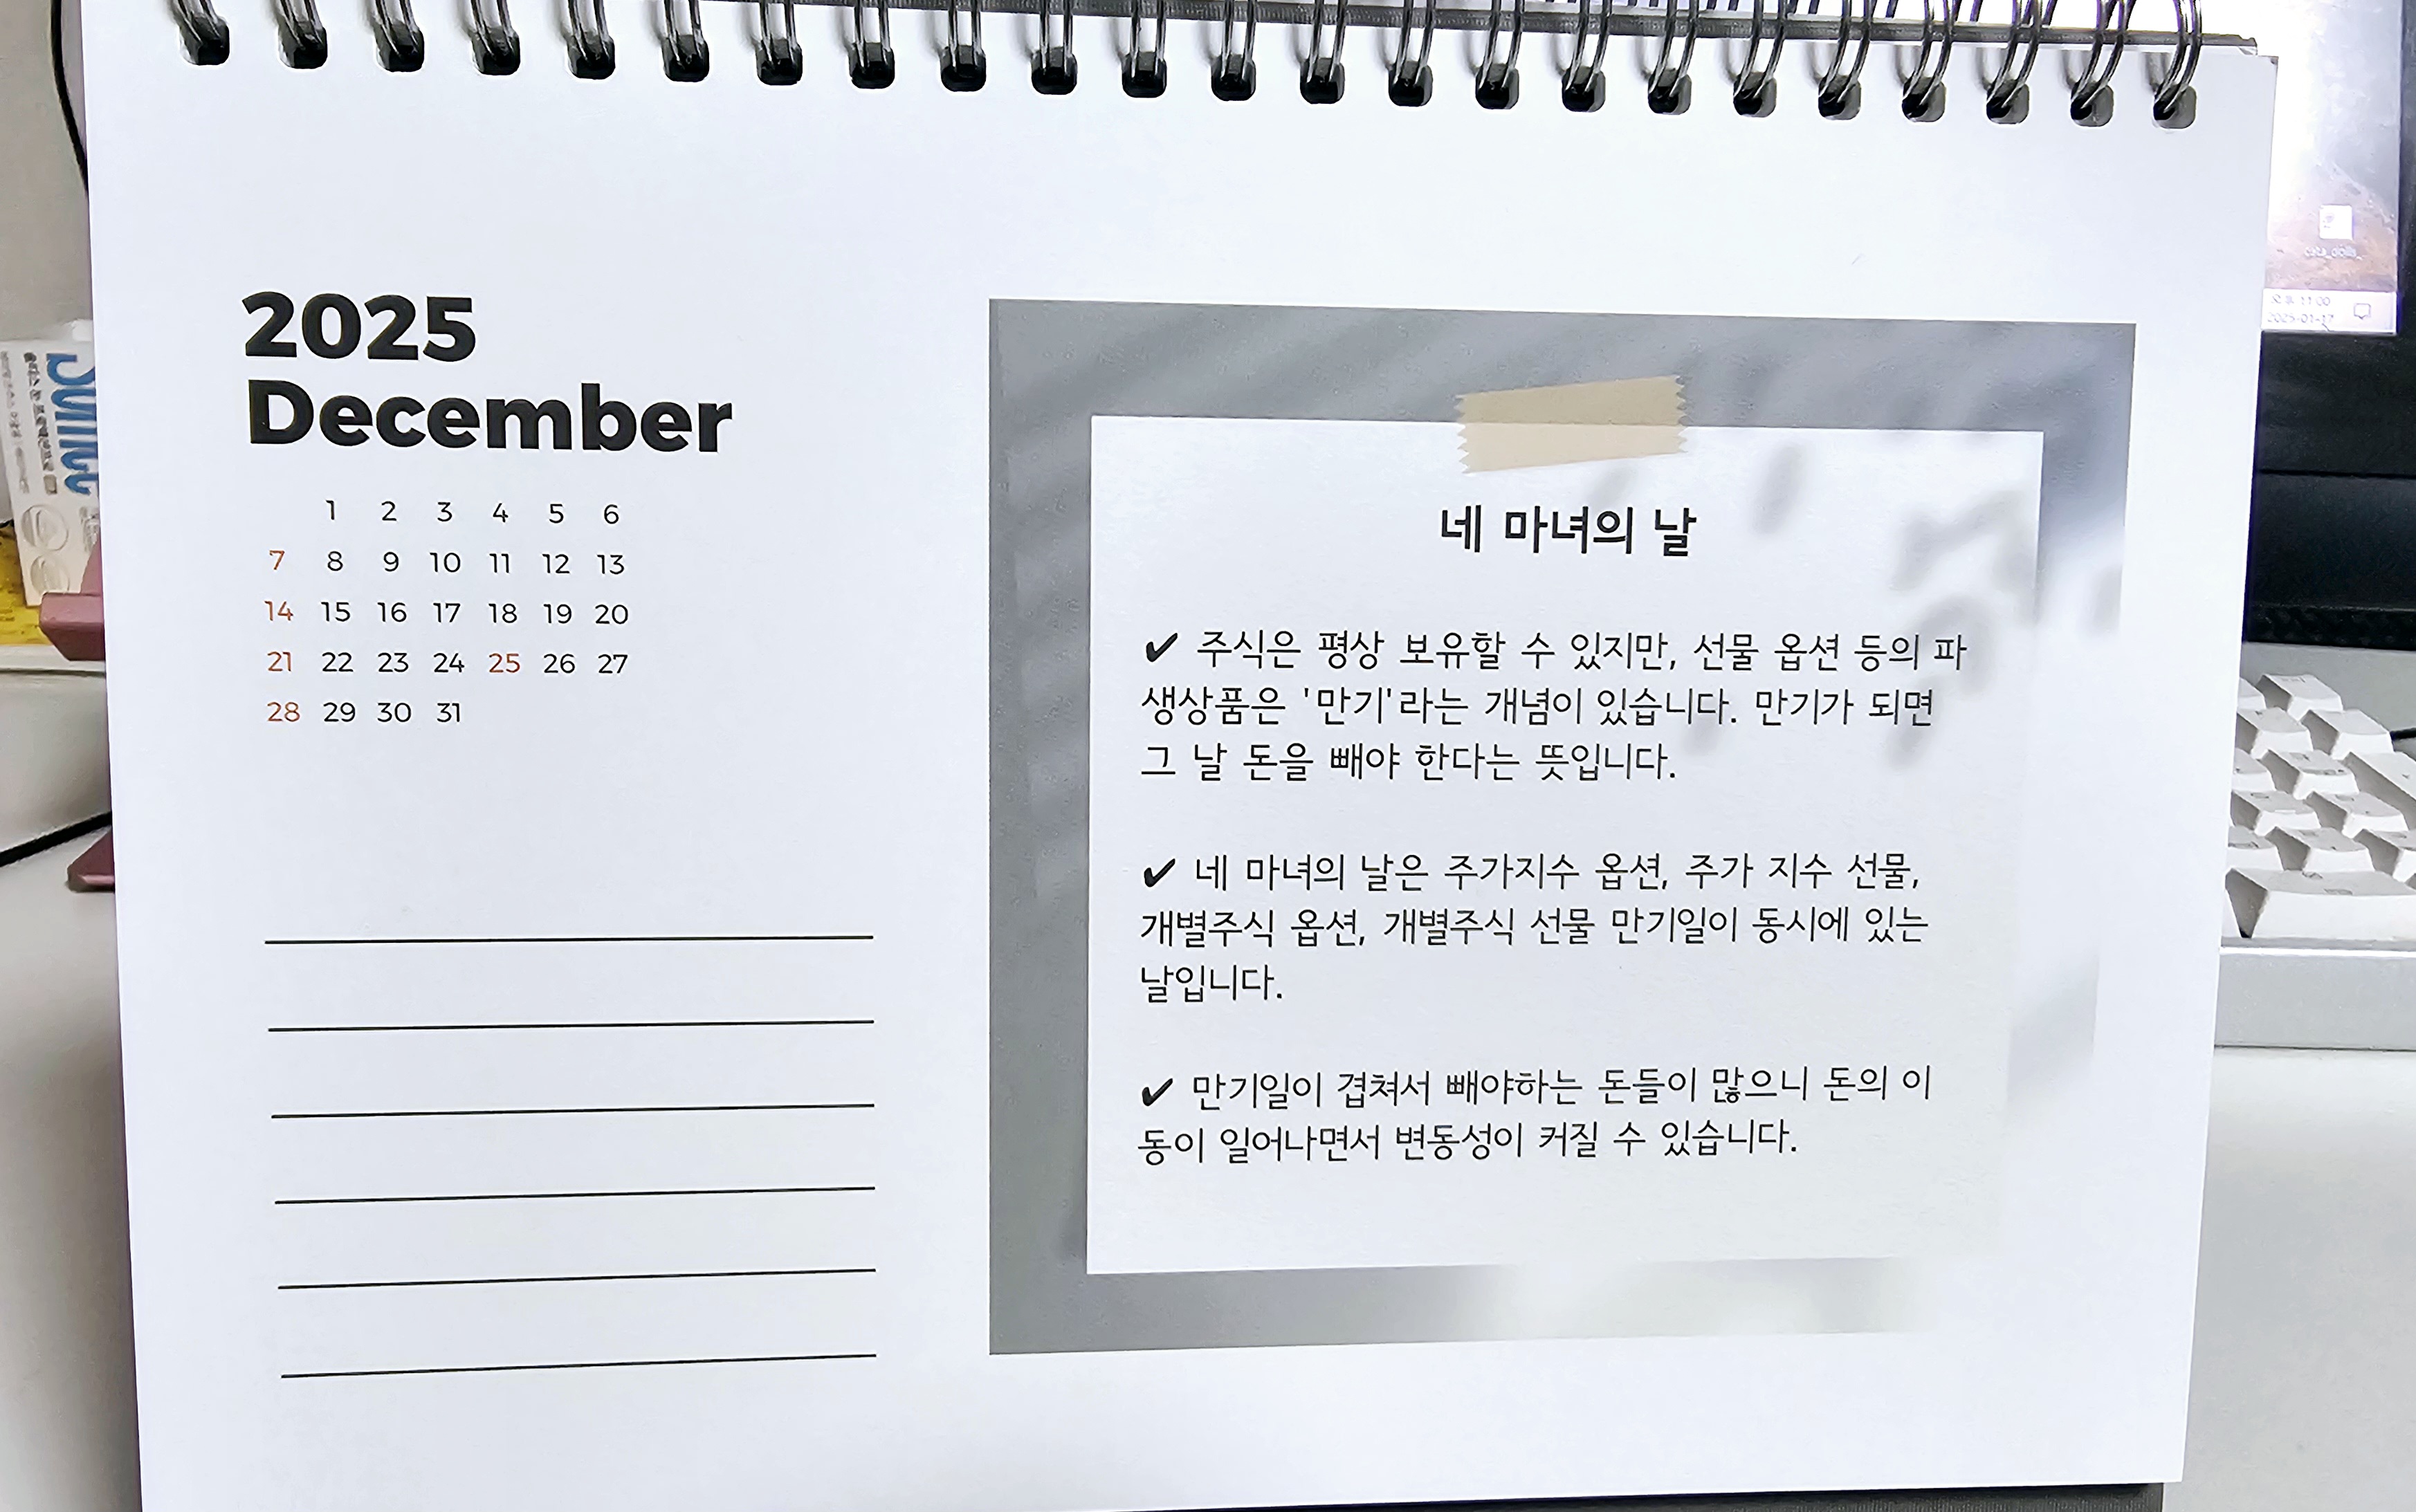 2025
December
1 2 3 4 5 6
7 8 9 10 11 12 13
14 15 16 17 18 19 20
21 22 23 24 25 26 27
28 29 30 31
네 마녀의 날
✔ 주식은 평상 보유할 수 있지만, 선물 옵션 등의 파
생상품은 '만기'라는 개념이 있습니다. 만기가 되면
그 날 돈을 빼야 한다는 뜻입니다.
✔ 네 마녀의 날은 주가지수 옵션, 주가 지수 선물,
개별주식 옵션, 개별주식 선물 만기일이 동시에 있는
날입니다.
✔ 만기일이 겹쳐서 빼야하는 돈들이 많으니 돈의 이
동이 일어나면서 변동성이 커질 수 있습니다.
오후 11:00
2025-01-17